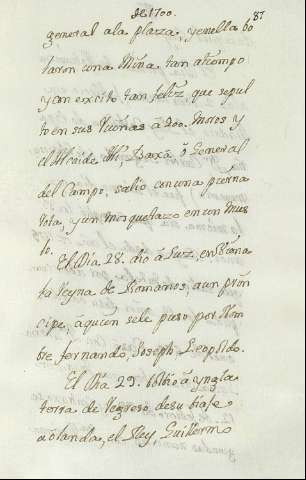 de 1700.
87
general a la plaza, yenella bo
laron una Mina tan atiempo
y con exito tan feliz, que sepul
to en sus ruinas a 200. Moros y
el Alcaide Ali, Baxà ò General
del Campo, salio con una pierna
rota y un mosquetazo en un mus
lo.
El Dia 28. dio à Luz, en Viena
la Reyna de Romanos, a un prin
cipe, à quien sele puso por Nom
bre fernando, Joseph Leopoldo.
El Dia 29. bolbio à yngla
terra de regreso de su biaje
a olanda, el Rey, Guillermo